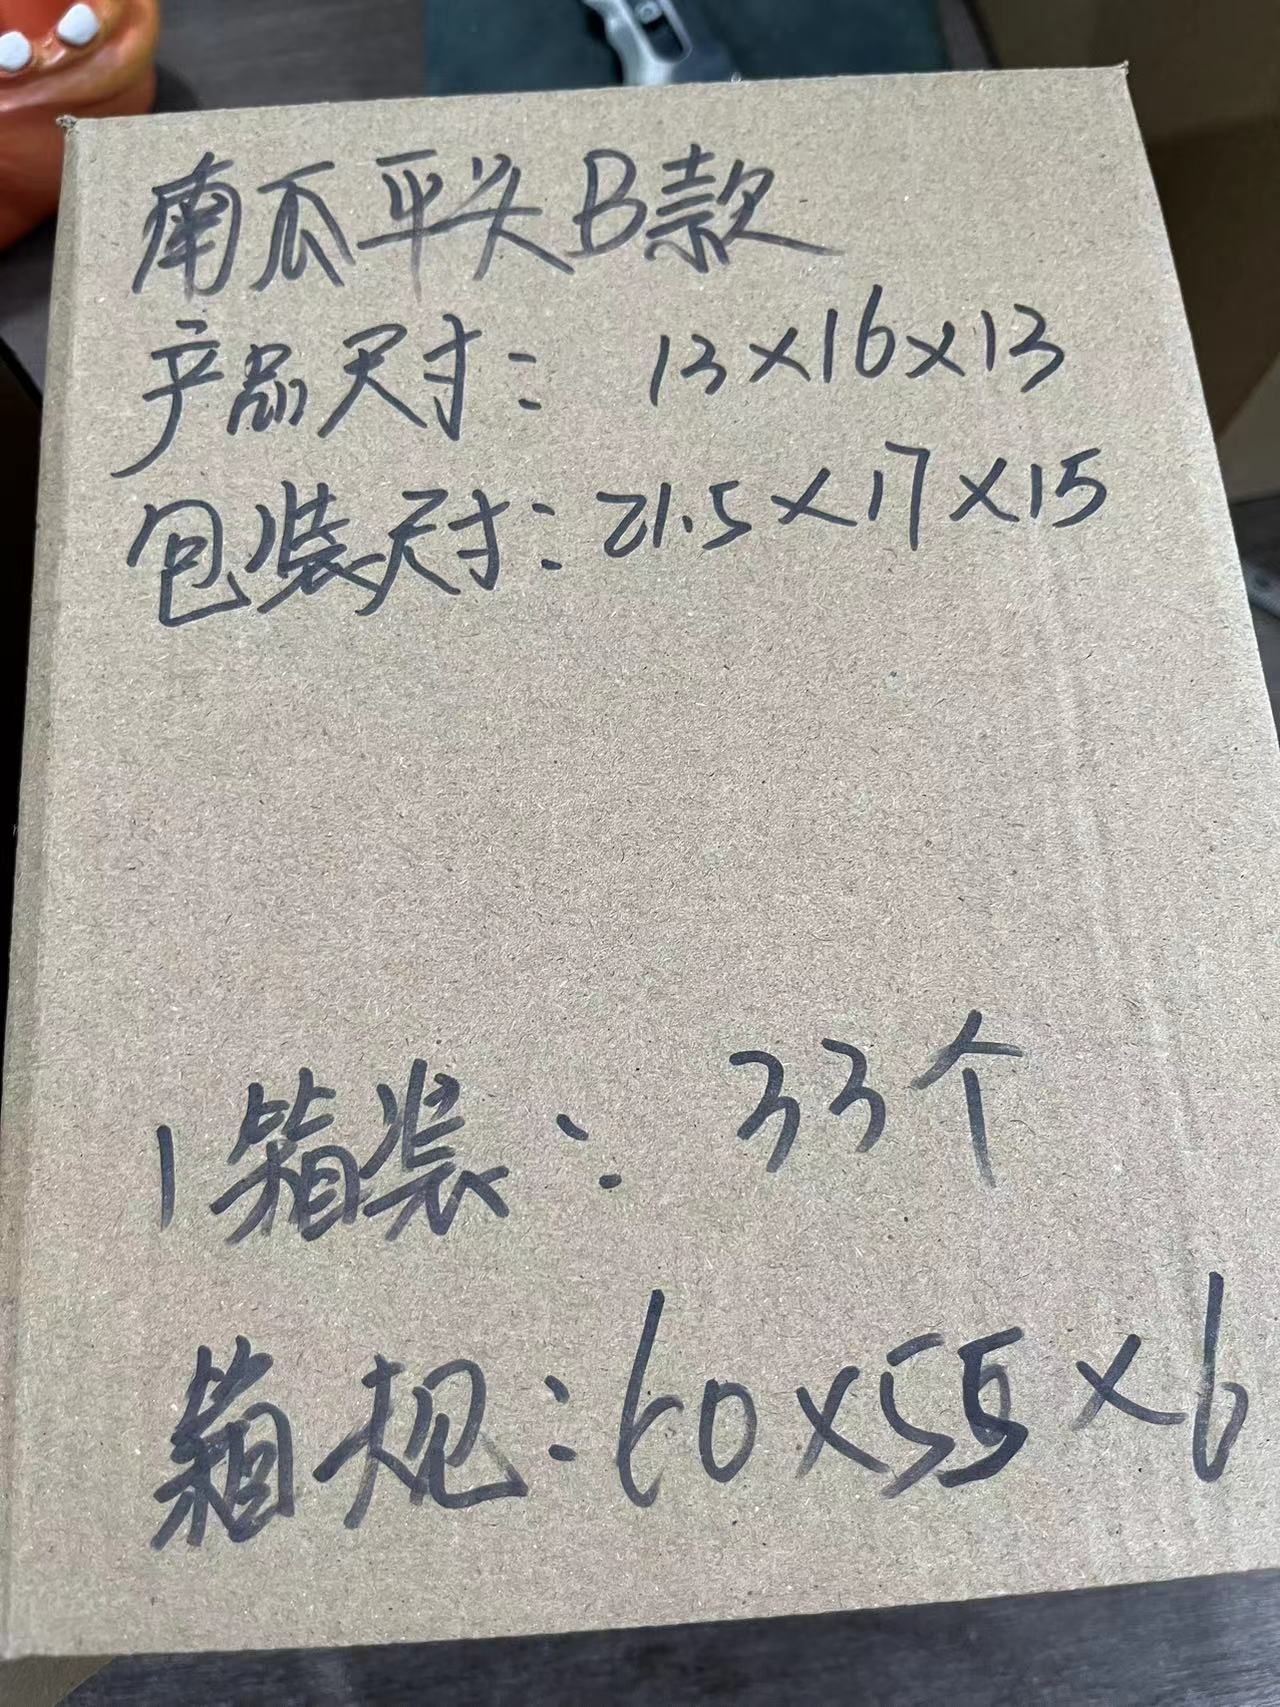 南瓜平头B款
产品尺寸: 13×16×13
包装尺寸: 21.5×17×15
1箱装: 33个
箱规: 60×55×6